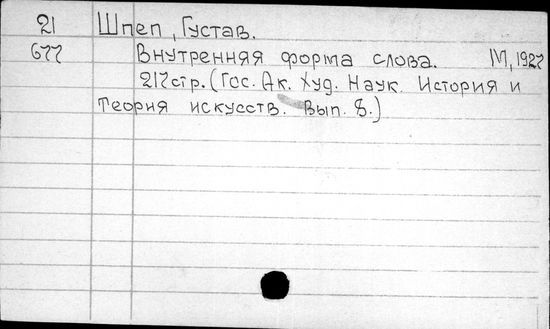 21 Шпеп, Густав.
677 Внутренняя форма слова. М, 1927
217стр. (Гос. Ак. Худ. Наук. История и
теория искусств. Вып. 8.)